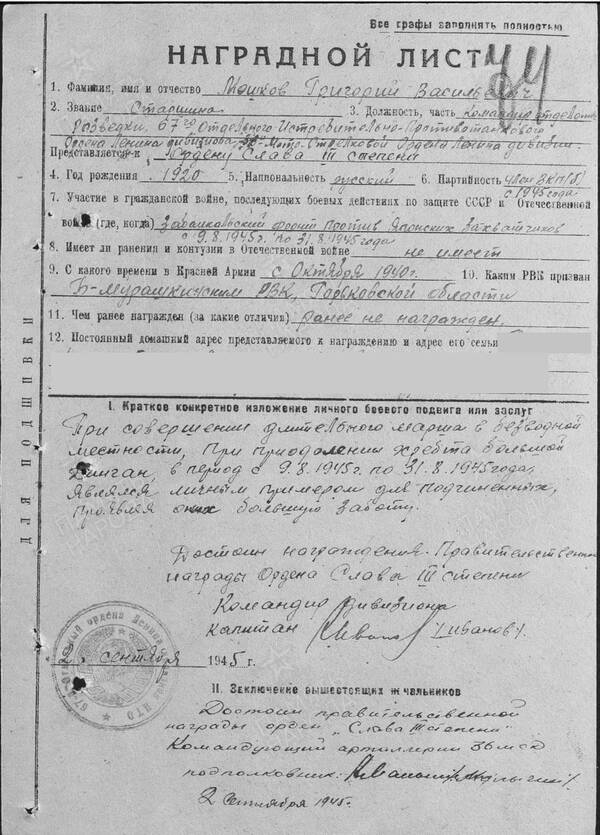 Все графы заполнять полностью
НАГРАДНОЙ ЛИСТ 44
1. Фамилия, имя и отчество Мошков Григорий Васильевич
2. Звание Старшина 3. Должность, часть Командир отделен.
разведки, 67го Отдельного Истребительно-Противотанкового
Ордена Ленина дивизиона, 36 Мото-Стрелковой Ордена Ленина дивизии.
Представляется к Ордену Слава III степени
4. Год рождения 1920 5. Национальность русский 6. Партийность член ВКП(б)
с 1945 года
7. Участие в гражданской войне, последующих боевых действиях по защите СССР и Отечественной
войне (где, когда) Забайкальский фронт против Японских Захватчиков
с 9.8.1945г. по 31.8.1945 года
8. Имеет ли ранения и контузии в Отечественной войне не имеет
9. С какого времени в Красной Армии с Октября 1940г. 10. Каким РВК призван
Б-Мурашкинским РВК, Горьковской области
11. Чем ранее награжден (за какие отличия) ранее не награжден.
12. Постоянный домашний адрес представляемого к награждению и адрес его семьи
ДЛЯ ПОДШИВКИ
I. Краткое конкретное изложение личного боевого подвига или заслуг
При совершении длительного марша в безводной
местности, при приодолении хребта Большой
Хинган, в период с 9.8.1945г. по 31.8.1945 года,
являлся личным примером для подчиненных,
проявляя о них большую заботу.
Достоин награждения Правительственной
награды Ордена Слава III степени
Командир дивизиона
капитан /Иванов/
2 сентября 1945 г.
II. Заключение вышестоящих начальников
Достоин правительственной
награды орден "Слава III степени"
Командующий артиллерии 36 мсд
подполковник:
2 Сентября 1945г.